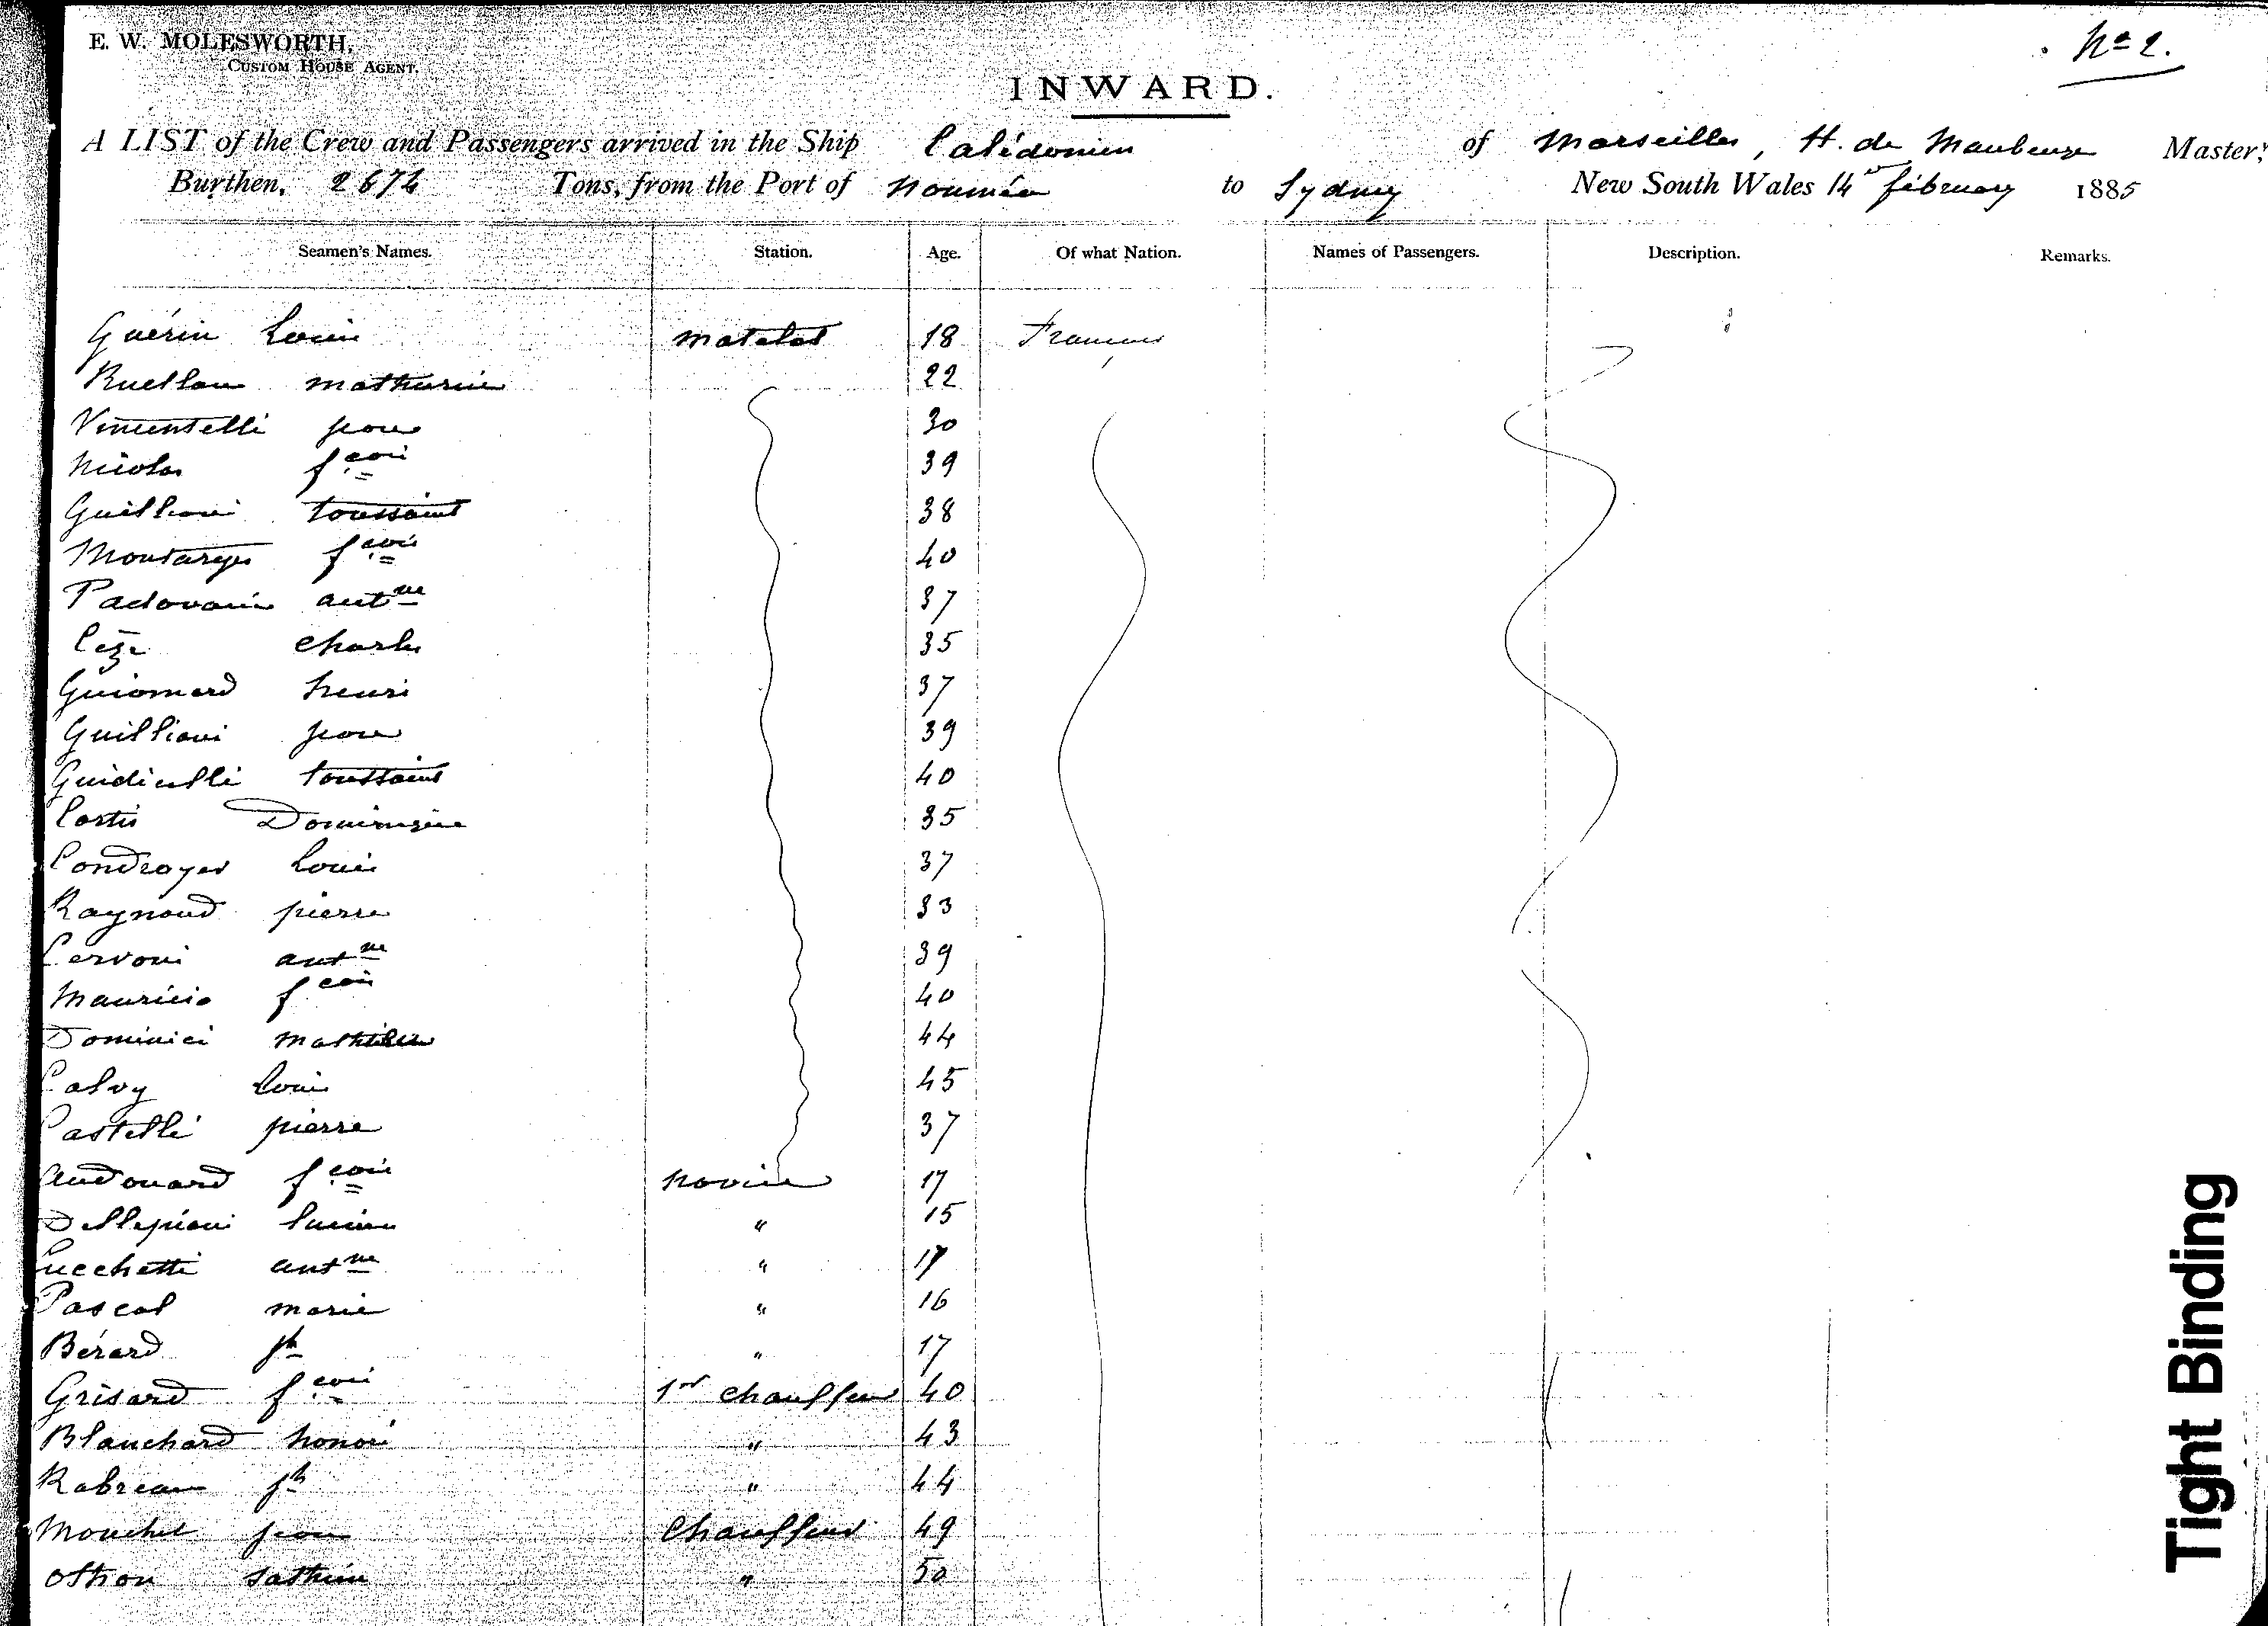 E. W. MOLESWORTH,
CUSTOM HOUSE AGENT.
No 2.
INWARD.
A LIST of the Crew and Passengers arrived in the Ship Calédonien of Marseilles, H. de Maubeuge Master,
Burthen, 2674 Tons, from the Port of Nouméa to Sydney New South Wales 14th february 1885
Seamen's Names. Station. Age. Of what Nation. Names of Passengers. Description. Remarks.
Guérin Louis matelot 18 Français
Ruellan mathurin 22
Vincentelli jean 30
Nicolas fçois 39
Guilliani toussaint 38
Montarges fçois 40
Padovani antne 37
Cèze Charles 35
Guiomard henri 37
Guilliani jean 39
Guidicelli toussaint 40
Costis Dominique 35
Condroyer Louis 37
Raynaud pierre 33
Cervoni antne 39
Mauricio fçois 40
Dominici mathieu 44
Calvy Louis 45
Castelli pierre 37
Audouard fçois novice 17
Dellepiani lucien " 15
Lucchetti antne " 17
Pascal marie " 16
Bérard jh " 17
Grisard fçois 1er chauffeur 40
Blanchard honoré " 43
Rabreau jh " 44
Mouchet jean Chauffeur 49
" 50
Tight Binding